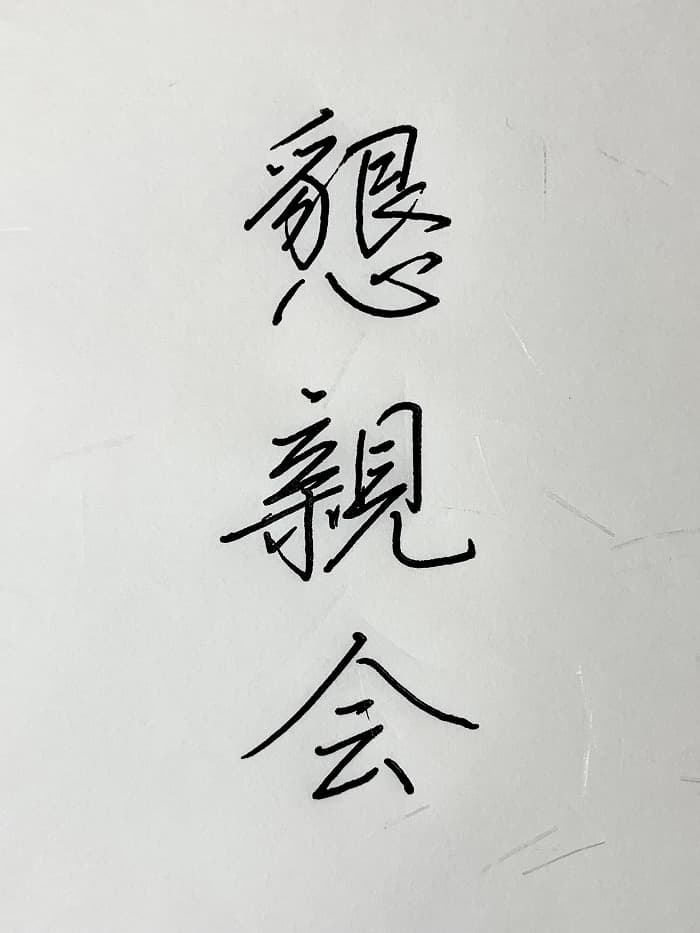 懇親会